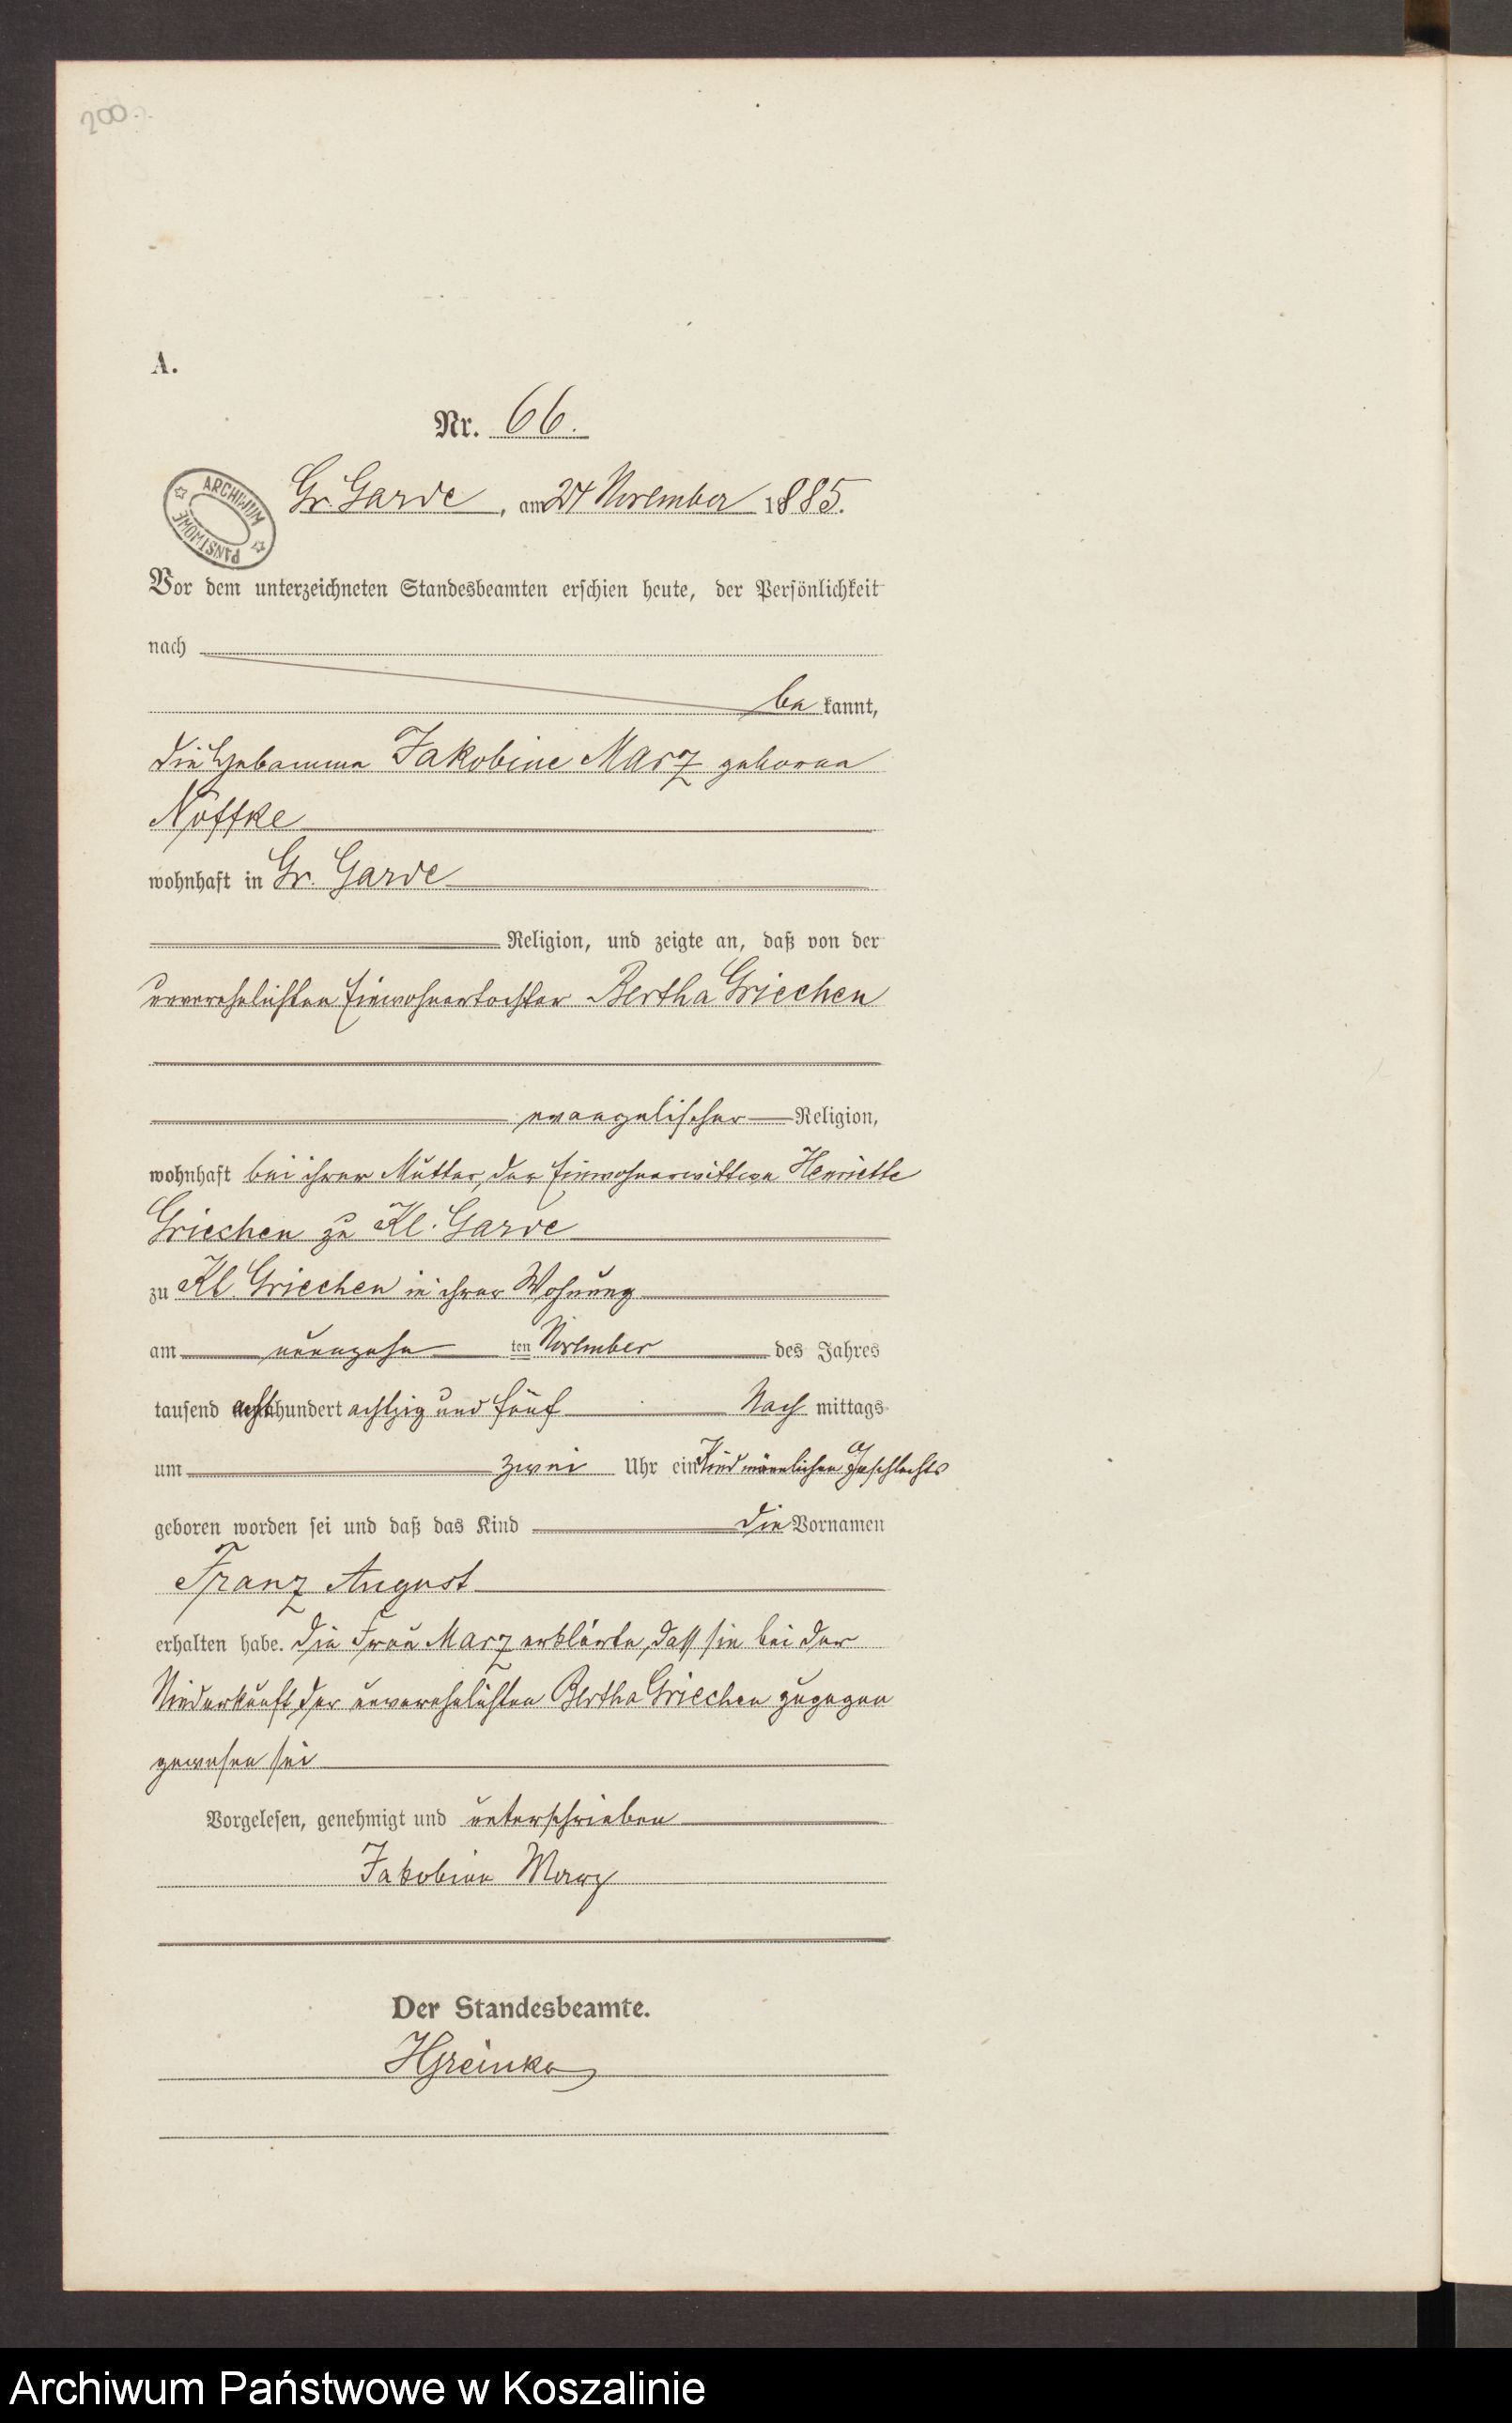 200.
A.
Nr. 66.
Gr. Garde, am 24 November 1885.
ARCHIWUM PAŃSTWOWE
Vor dem unterzeichneten Standesbeamten erschien heute, der Persönlichkeit
nach
be kannt,
die Hebamme Jakobine Marz geborene
Nöffke
wohnhaft in Gr. Garde
Religion, und zeigte an, daß von der
unverehelichten Einwohnertochter Bertha Griechen
evangelischer Religion,
wohnhaft bei ihrer Mutter, der Einwohnerwittwe Henriette
Griechen zu Kl. Garde
zu Kl. Griechen in ihrer Wohnung
am neunzehn ten November des Jahres
tausend acht hundert achtzig und fünf Nach mittags
um zwei Uhr ein Kind männlichen Geschlechts
geboren worden sei und daß das Kind die Vornamen
Franz August
erhalten habe. Die Frau Marz erklärte, daß sie bei der
Niederkunft der unverehelichten Bertha Griechen zugegen
gewesen sei
Vorgelesen, genehmigt und unterschrieben
Jakobine Marz
Der Standesbeamte.
Archiwum Państwowe w Koszalinie